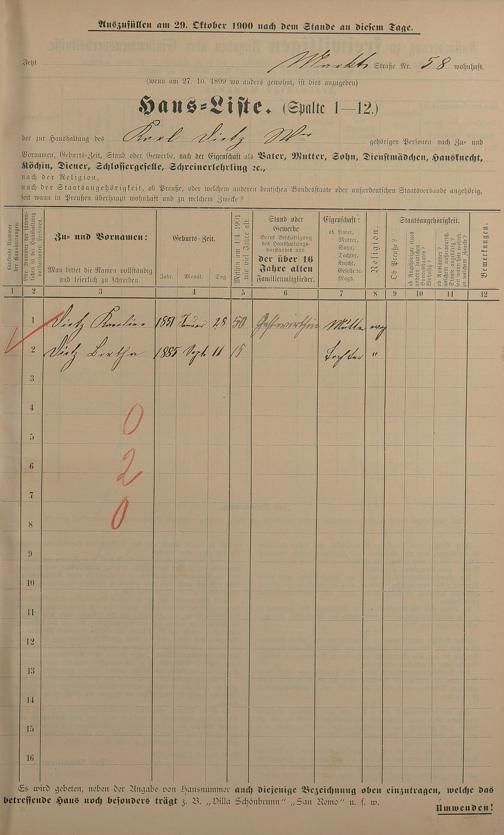 Auszufüllen am 29. Oktober 1900 nach dem Stande an diesem Tage.
Jetzt Markt Straße Nr. 58 wohnhaft.
(wenn am 27. 10. 1899 wo anders gewohnt, ist dies anzugeben)
Haus=Liste. (Spalte 1—12.)
der zur Haushaltung des Karl Dietz Wwe gehörigen Personen nach Zu- und
Vornamen, Geburts-Zeit, Stand oder Gewerbe, nach der Eigenschaft als Vater, Mutter, Sohn, Dienstmädchen, Hausknecht,
Köchin, Diener, Schlossergeselle, Schreinerlehrling ꝛc.,
nach der Religion,
nach der Staatsangehörigkeit, ob Preuße, oder welchem anderen deutschen Bundesstaate oder außerdeutschen Staatsverbande angehörig,
seit wann in Preußen überhaupt wohnhaft und zu welchem Zwecke?
Zu- und Vornamen:
Man bittet die Namen vollständig
und leserlich zu schreiben.
Geburts-Zeit.
Jahr. Monat. Tag.
Stand oder
Gewerbe
der über 16
Jahre alten
Familienmitglieder.
Eigenschaft:
ob Vater,
Mutter,
Sohn,
Tochter,
Knecht,
Geselle ꝛc.
Magd.
Religion.
Staatsangehörigkeit.
Ob Preuße?
Bemerkungen.
1 2 3 4 5 6 7 8 9 10 11 12
1 Dietz Karoline 1851 Januar 28 50 Gastwirthin Mutter evg
2 Dietz Bertha 1885 Sept 11 15 Tochter "
3
4
0
5
6
2
7
8
0
9
10
11
12
13
14
15
16
Es wird gebeten, neben der Angabe von Hausnummer auch diejenige Bezeichnung oben einzutragen, welche das
betreffende Haus noch besonders trägt z. B. „Villa Schönbrunn" „San Remo" u. s. w.
Umwenden!